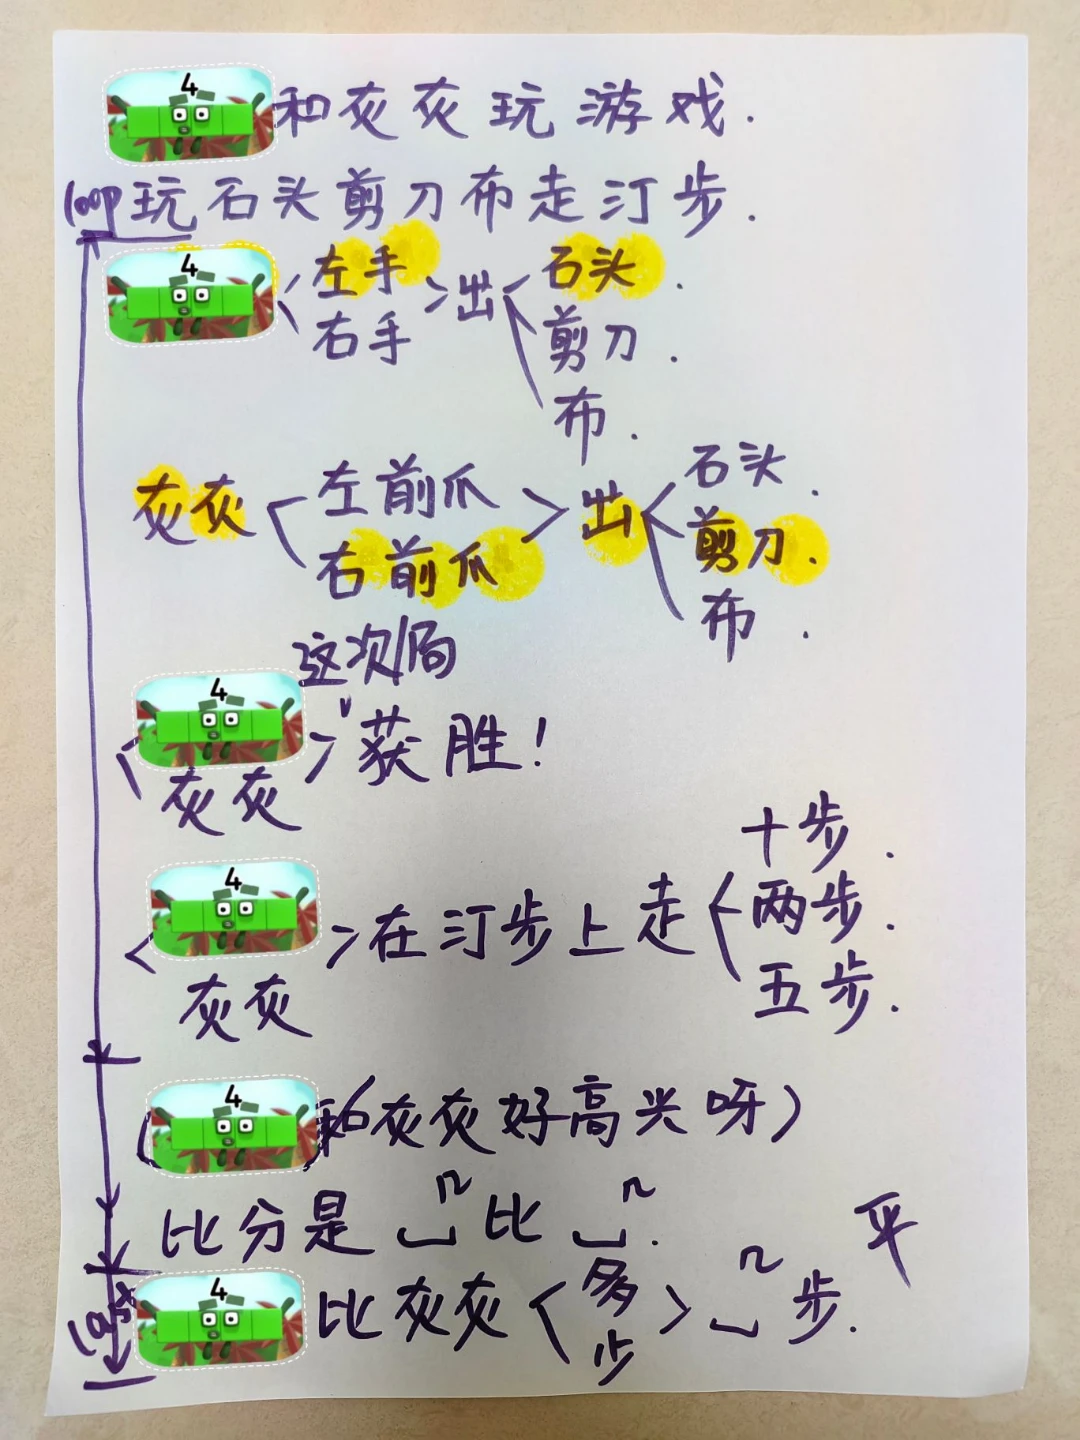 4 和灰灰玩游戏.
loop 玩石头剪刀布走汀步.
4 < 左手 > 出 < 石头.
右手
剪刀.
布.
灰灰 < 左前爪 > 出 < 石头.
右前爪
剪刀.
布.
这次/局
< 4 > 获胜!
灰灰
十步.
< 4 > 在汀步上走 < 两步.
灰灰
五步.
(4 和灰灰好高兴呀)
比分是 n 比 n.
平
last 4 比灰灰 < 多 > n 步.
少